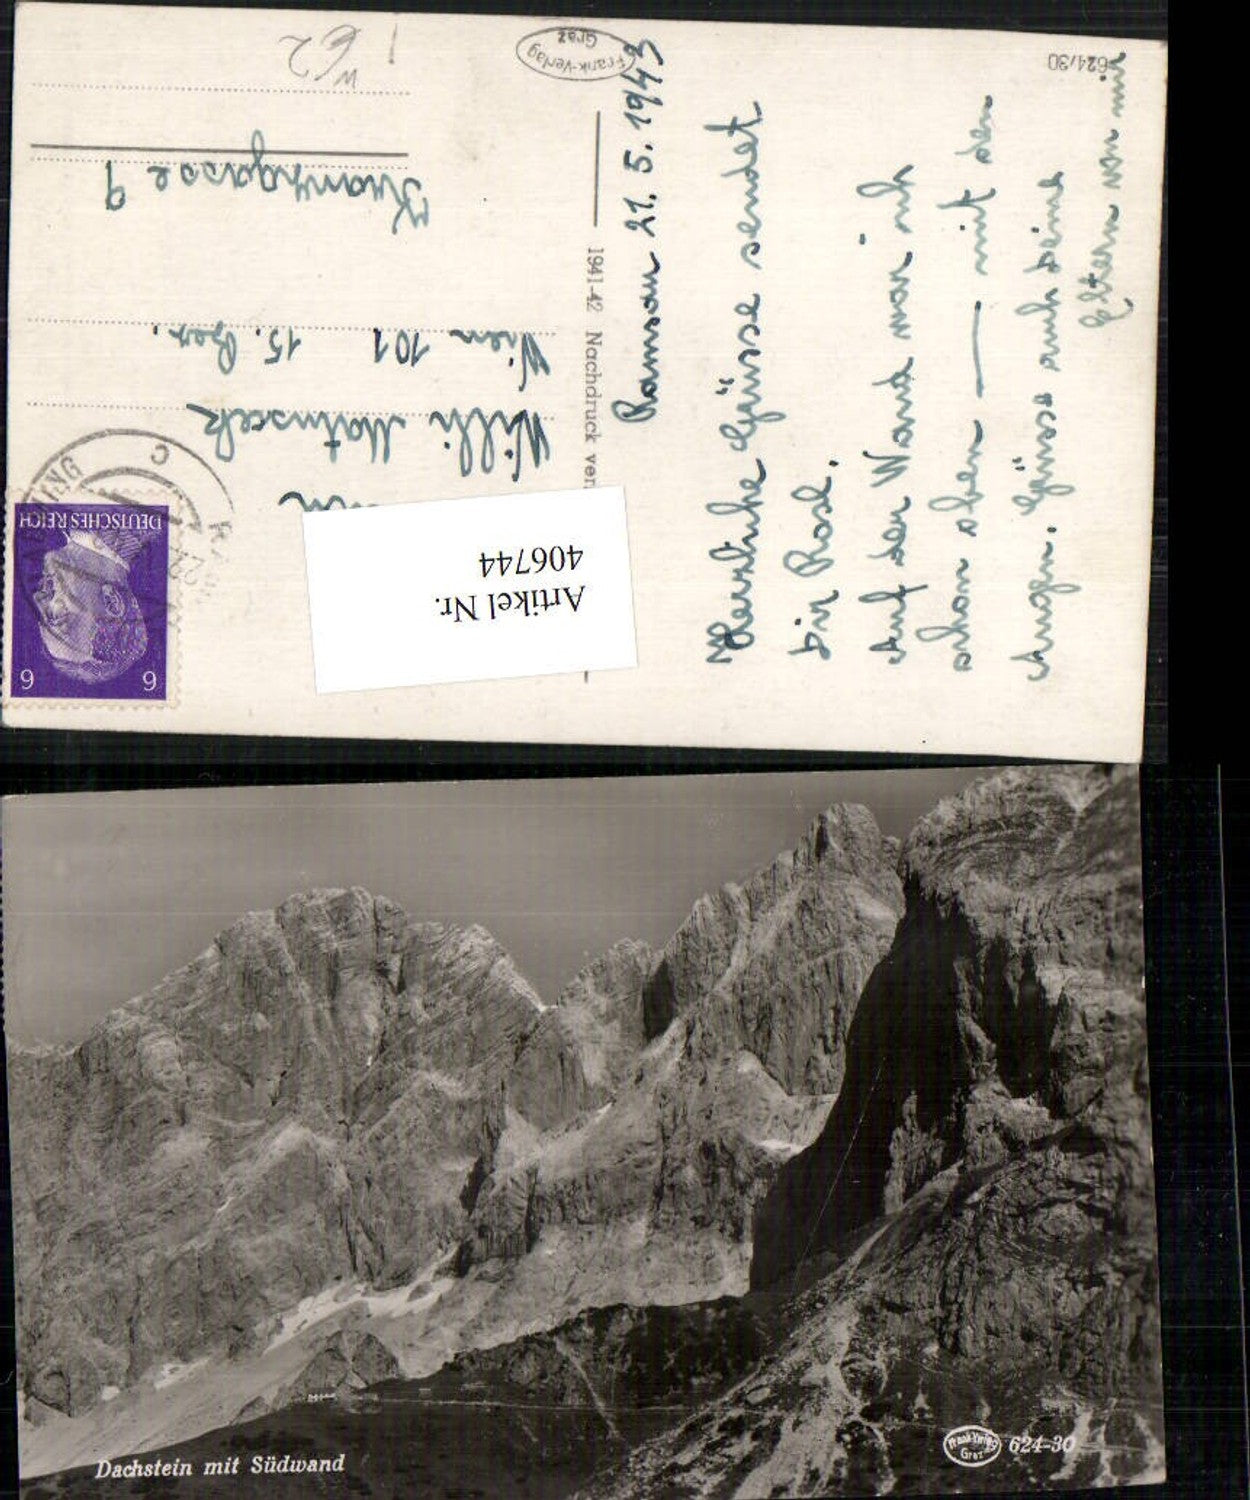 624/30
Frank-Verlag
Graz
Ramsau 21. 5. 1943
Herzliche Grüsse sendet
Dir Rosl.
Auf der Wand war ich
schon oben — mit den
Augen. Grüsse auch Deine
Eltern von mir
1941-42 Nachdruck ver
DEUTSCHES REICH
6 6
C
Willi Matuscek
Wien 101 15. Bez.
9
W
Artikel Nr.
406744
Dachstein mit Südwand
Frank-Verlag
Graz
624-30